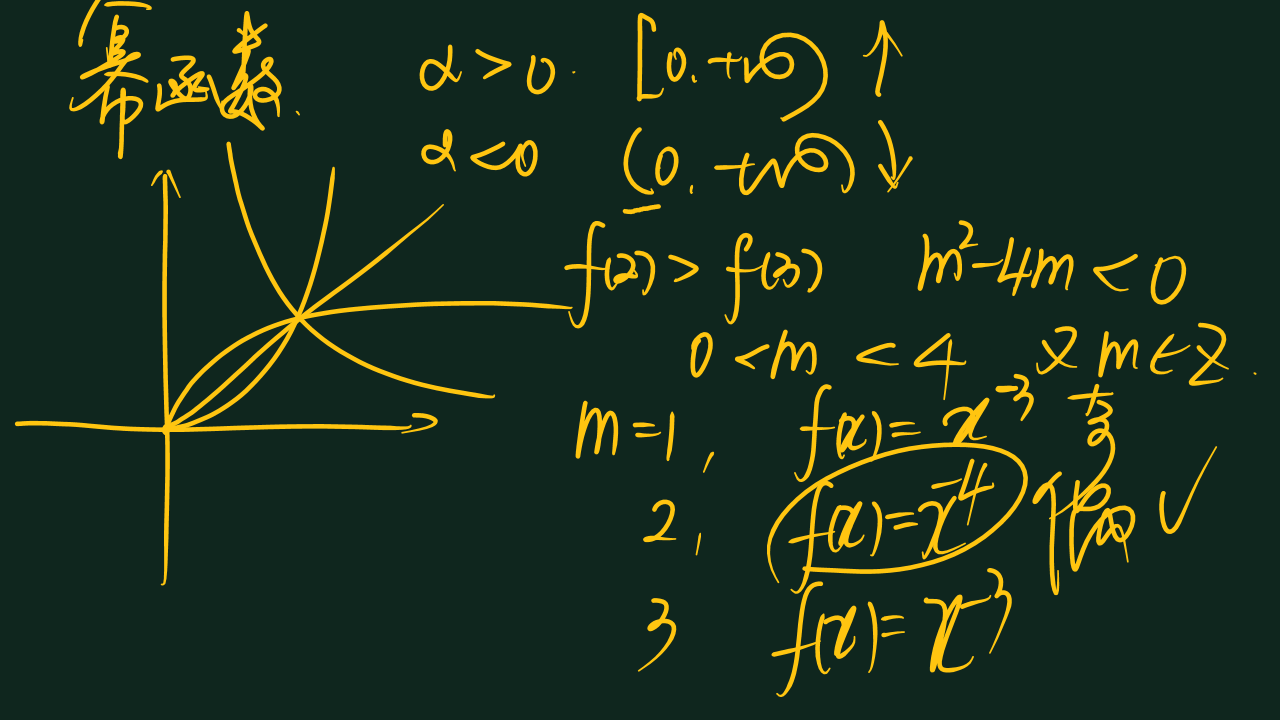 幂函数.
α>0. [0,+∞) ↑
α<0 (0,+∞) ↓
f(2)>f(3) m²-4m<0
0<m<4 又m∈Z.
m=1, f(x)=x⁻³ 奇
2, f(x)=x⁻⁴ 偶 ✓
3 f(x)=x⁻³